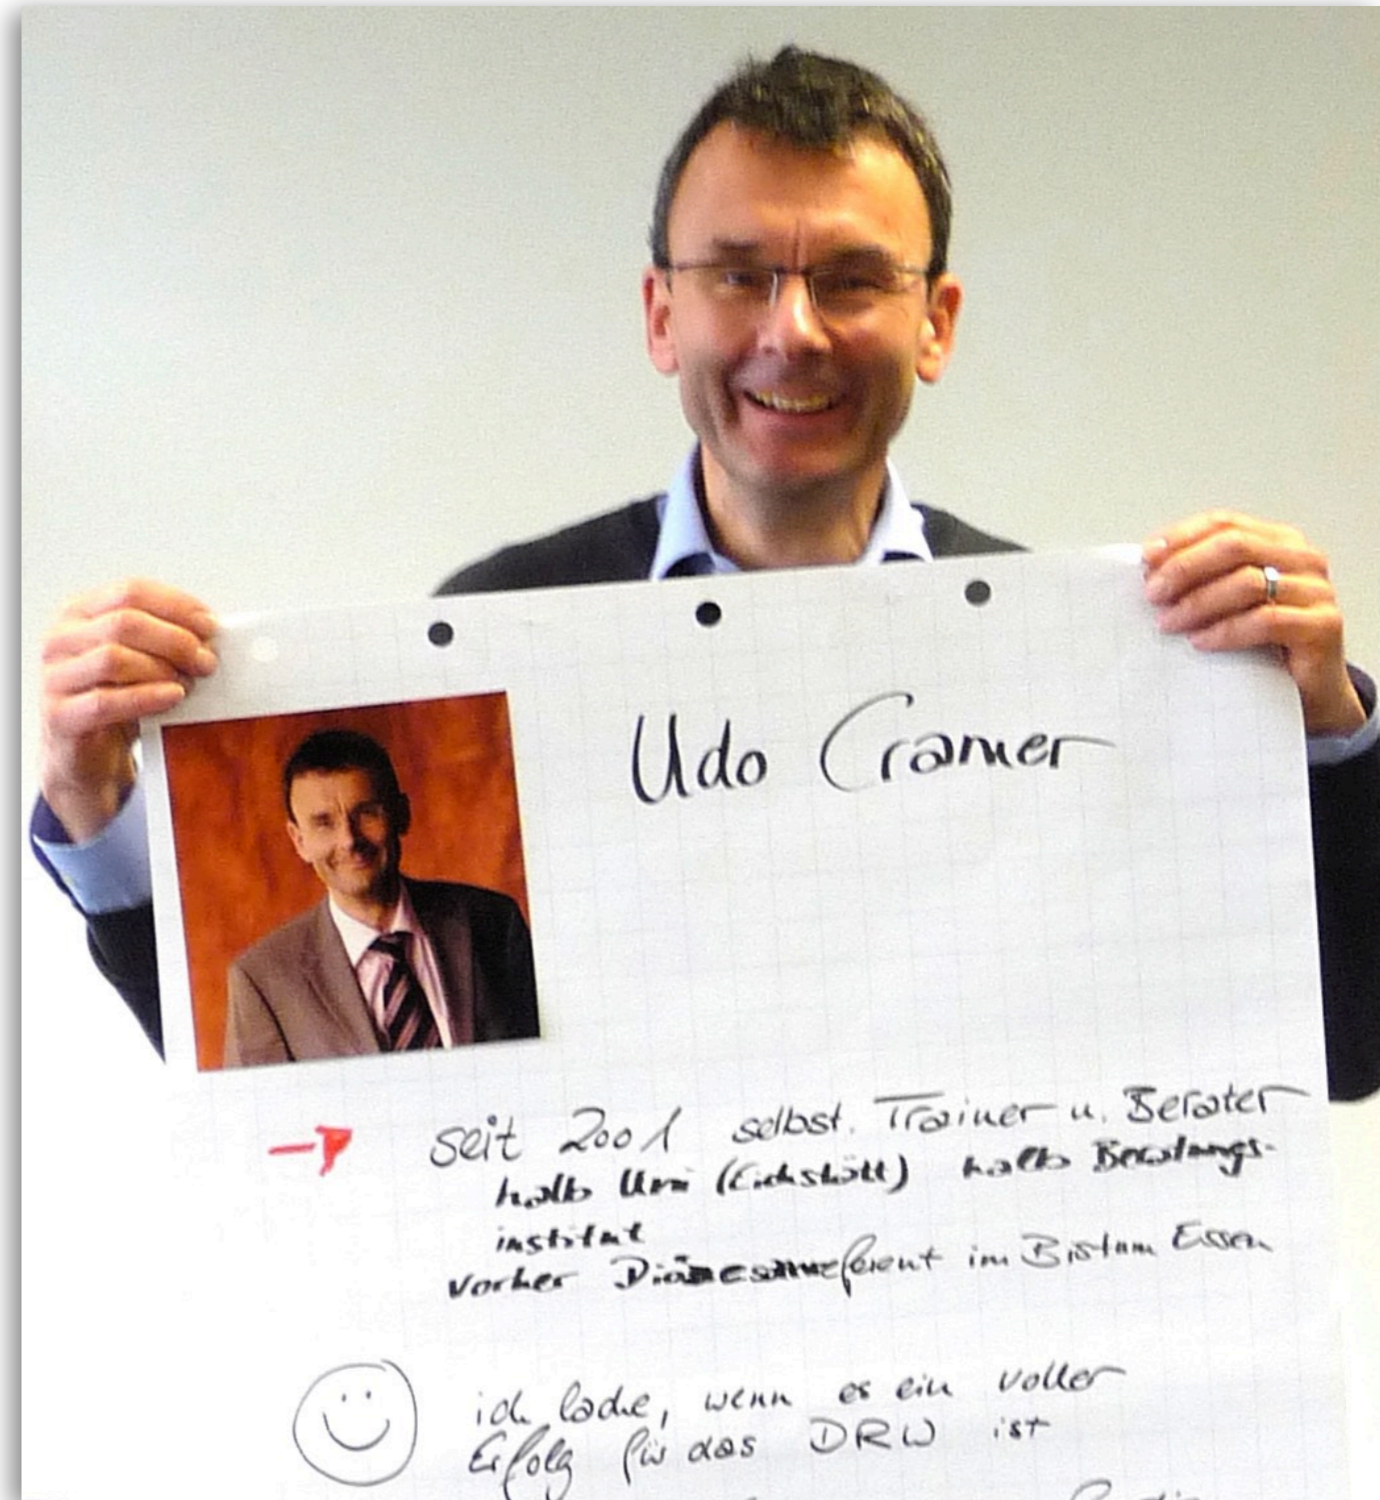 Udo Cramer
seit 2001 selbst. Trainer u. Berater
halb Uni (Eichstätt) halb Beratungs-
institut
vorher Diözesanreferent im Bistum Essen
ich lache, wenn es ein voller
Erfolg für das DRW ist